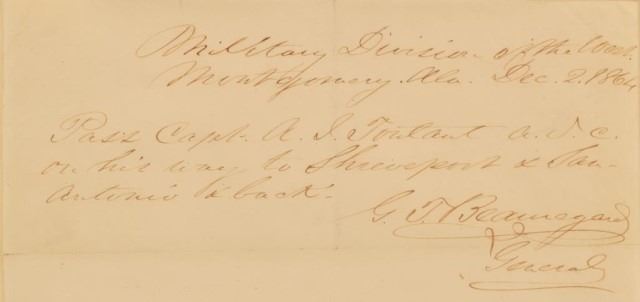 Military Division of the West.
Montgomery. Ala. Dec. 2. 1864
Pass Capt. A. J. Toutant A. D. C.
on his way to Shreveport & San-
Antonio & back.
G. T. Beauregard
General